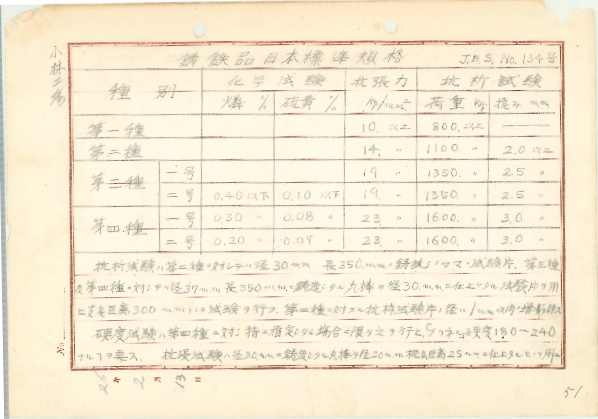 小林工場
鋳鉄品日本標準規格 J.E.S. No. 134号
種別 化学試験 抗張力 抗折試験
燐 % 硫黄 % Kg/mm² 荷重 Kg. 撓み mm
第一種 10. 以上 800. 以上 ―
第二種 14. 〃 1100. 〃 2.0 以上
第三種 一号 19 〃 1350. 〃 2.5 〃
二号 0.40 以下 0.10 以下 19. 〃 1350. 〃 2.5 〃
第四種 一号 0.30 〃 0.08 〃 23 〃 1600. 〃 3.0 〃
二号 0.20 〃 0.07 〃 23. 〃 1600. 〃 3.0 〃
抗折試験ハ第二種ニ対シテハ径30mm 長350.mm 鋳放シノママノ試験片、第三種
及第四種ニ対シテハ径37mm 長350mmニ鋳造シタル丸棒ヲ径30.mmニ仕上ゲタル試験片ヲ用
ヒ支点距離300mmトシ試験ヲ行フ 第二種ニ対スル抗折試験片ノ径ハ1mm以内ノ
硬度試験ハ第四種ニ対シ特ニ指定シタル場合ニ限リ之ヲ行ヒ ブリネル硬度180~240
ナルヲ要ス. 抗張試験ハ径30.mmニ鋳造シタル丸棒ヲ径20mm 標点距離25mmニ仕上タルヒヲ用
No.
年 2 月 13 日
51